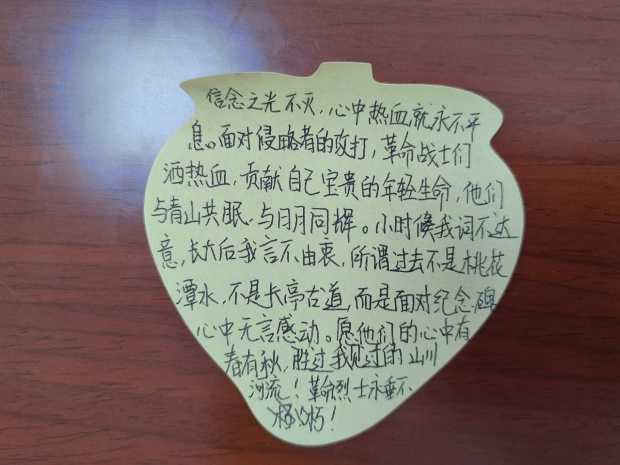 信念之光不灭，心中热血就永不平
息。面对侵略者的攻打，革命战士们
洒热血，贡献自己宝贵的年轻生命，他们
与青山共眠，与日月同辉。小时候我词不达
意，长大后我言不由衷，所谓过去不是桃花
潭水，不是长亭古道，而是面对纪念碑
心中无言感动。愿他们的心中有
春有秋，胜过我见过的山川
河流！革命烈士永垂不
朽！